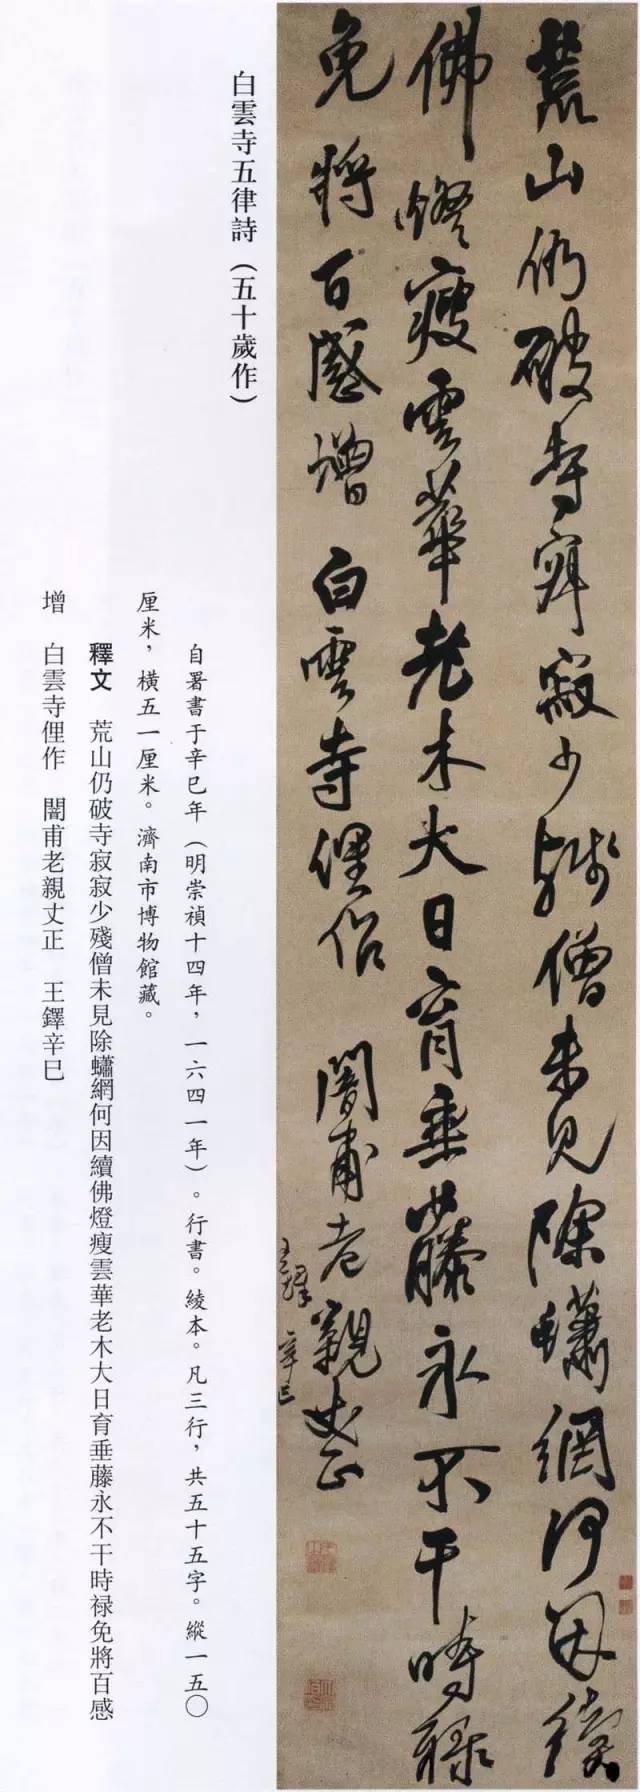 荒山仍破寺寂寂少殘僧未見除蠨網何因續
佛燈瘦雲華老木大日育垂藤永不干時禄
免將百感增 白雲寺俚作 闇甫老親丈正
王鐸 辛巳
白雲寺五律詩（五十歲作）
自署書于辛巳年（明崇禎十四年，一六四一年）。行書。綾本。凡三行，共五十五字。縱一五〇
厘米，橫五一厘米。濟南市博物館藏。
釋文 荒山仍破寺寂寂少殘僧未見除蠨網何因續佛燈瘦雲華老木大日育垂藤永不干時禄免將百感
增 白雲寺俚作 闇甫老親丈正 王鐸辛巳